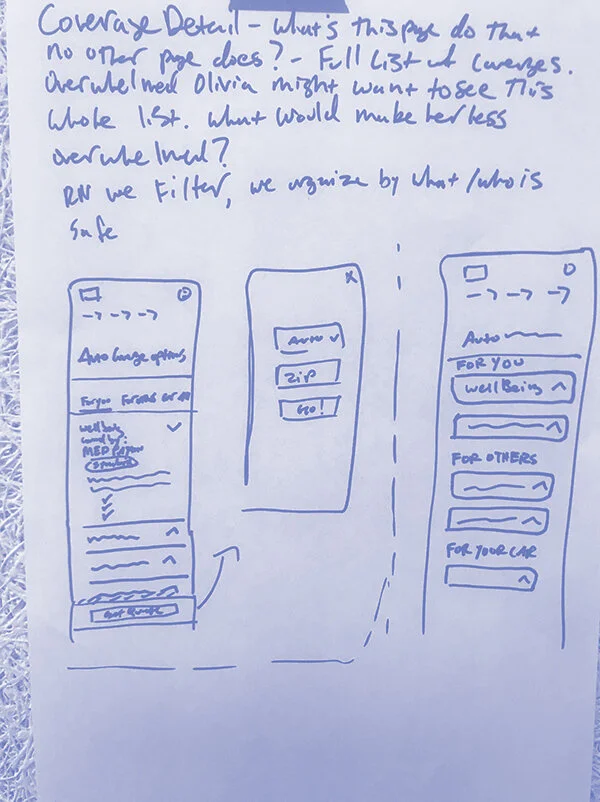 Coverage Detail - what's this page do that
no other page does? - Full List of Coverages.
Overwhelmed Olivia might want to see this
whole list. What would make her less
overwhelmed?
RN we Filter, we organize by what/who is
safe
Auto Coverage options
For you For others
well being
covered by:
MED PAY
Get Quote
X
Auto
Zip
Go!
Auto
FOR YOU
Well Being
FOR OTHERS
FOR YOUR CAR